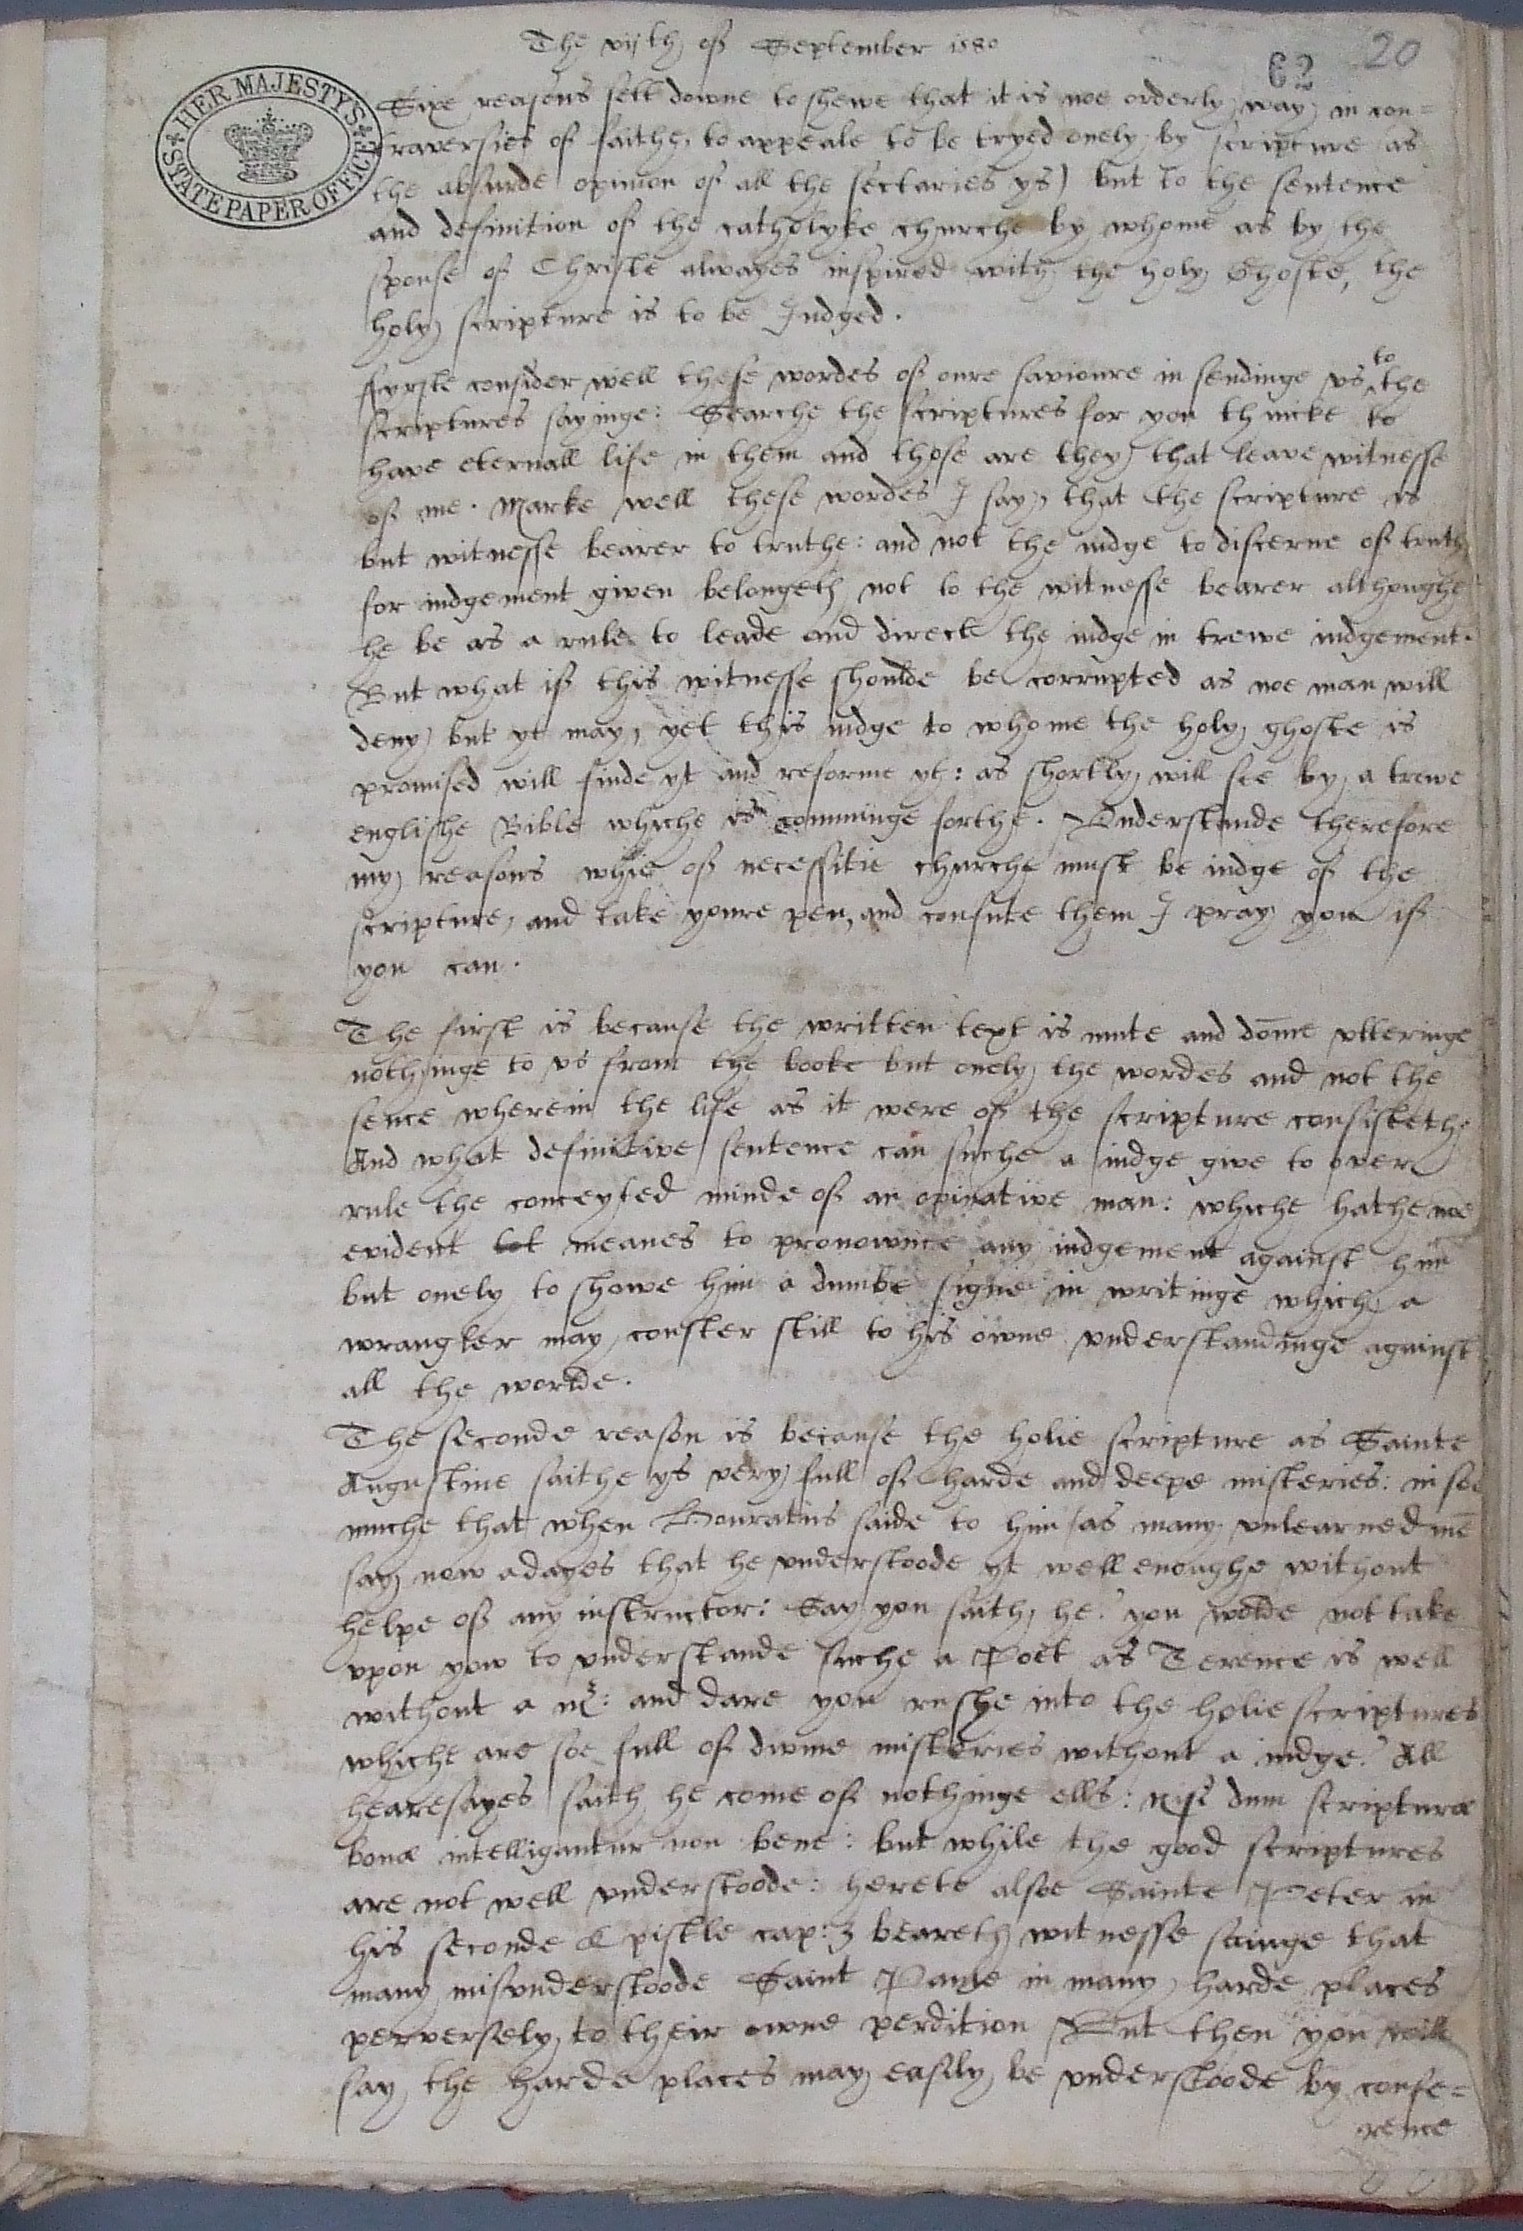 The vijth of September 1580
62 20
HER MAJESTY'S STATE PAPER OFFICE
Sixe reasons sett downe to shewe that it is noe orderly way in con=
traversies of faithe, to appeale to be tryed onely by scripture as
the absurde opinion of all the sectaries ys) but to the sentence
and definition of the catholyke churche by whome as by the
spouse of Christe alwayes inspired with the holy Ghoste, the
holy scripture is to be Judged.
ffyrste consider well these wordes of oure savioure in sendinge vs to the
scriptures sayinge: Searche the scriptures for you thincke to
have eternall life in them and those are they that beare witnesse
of me. Marke well these wordes I say, that the scripture is
but witnesse bearer to truthe: and not the iudge to discerne of truth
for iudgement given belongeth not to the witnesse bearer althoughe
he be as a rule to leade and directe the iudge in trewe iudgement.
But what if this witnesse shoulde be corrupted as noe man will
deny but yt may, yet this iudge to whome the holy ghoste is
promised will finde yt and reforme yt: as shortly will see by a trewe
englishe Bible whiche is comminge forthe. Vnderstande therefore
my reasons whie of necessitie churche must be iudge of the
scripture, and take youre pen, and confute them I pray you if
you can.
The first is because the written text is mute and dome vtteringe
nothinge to vs from the booke but onely the wordes and not the
sence wherein the life as it were of the scripture consistethe
And what definitive sentence can suche a iudge give to over
rule the conceyted minde of an opinative man: whiche hathe noe
evident meanes to pronownce any iudgement against him
but onely to showe him a dumbe signe in writinge which a
wrangler may conster still to his owne vnderstandinge against
all the worlde.
The seconde reason is because the holie scripture as Sainte
Augustine saithe ys very full of harde and deepe misteries: in soe
muche that when Honoratus saide to him (as many vnlearned me
say now adayes that he vnderstoode yt well enoughe without
helpe of any instructor: Say you saith he? you wolde not take
vpon yow to vnderstande suche a Poet as Terence is well
without a mr: and dare you rushe into the holie scriptures
whiche are soe full of divine misteries without a iudge? All
hearesayes saith he come of nothinge ells: nisi dum scripturæ
bonæ intelliguntur non bene: but while the good scriptures
are not well vnderstoode: hereto alsoe Sainte Peter in
his seconde Epistle cap: 3 beareth witnesse sainge that
many misvnderstoode Saint Paule in many harde places
perversely to their owne perdition But then you will
say the harde places may easily be vnderstoode by confe=
rence